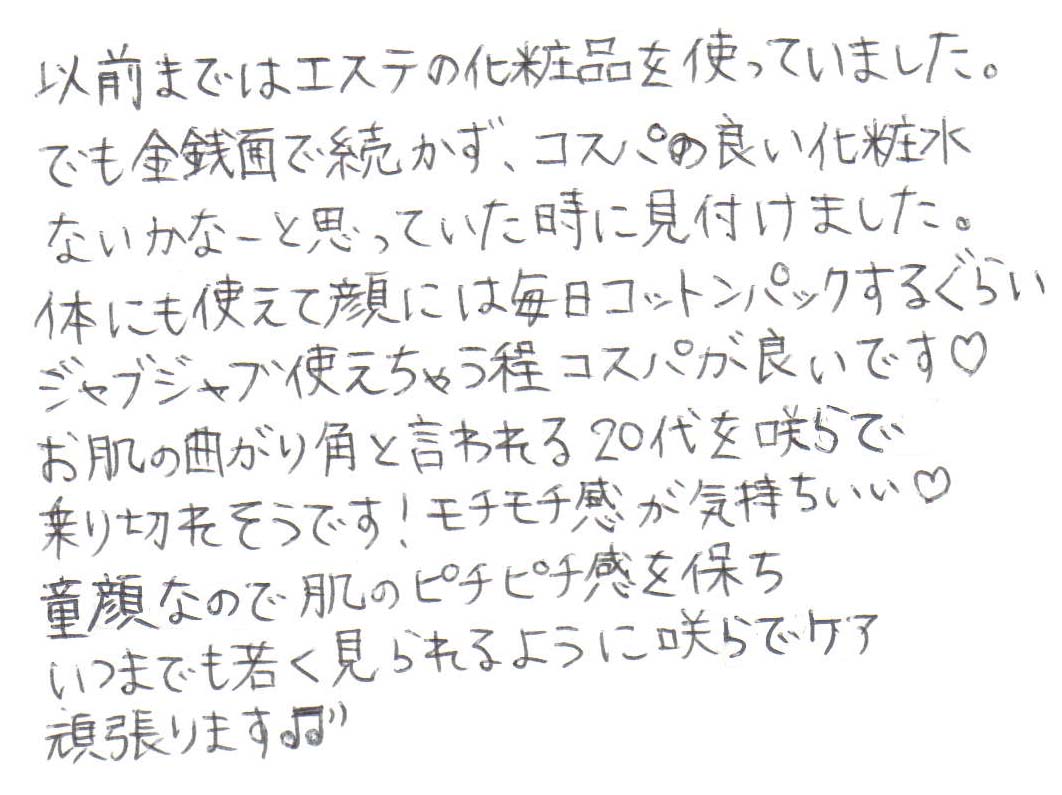 以前まではエステの化粧品を使っていました。
でも金銭面で続かず、コスパの良い化粧水
ないかなーと思っていた時に見付けました。
体にも使えて顔には毎日コットンパックするぐらい
ジャブジャブ使えちゃう程コスパが良いです♡
お肌の曲がり角と言われる20代を咲らで
乗り切れそうです!モチモチ感が気持ちいい♡
童顔なので肌のピチピチ感を保ち
いつまでも若く見られるように咲らでケア
頑張ります♫"